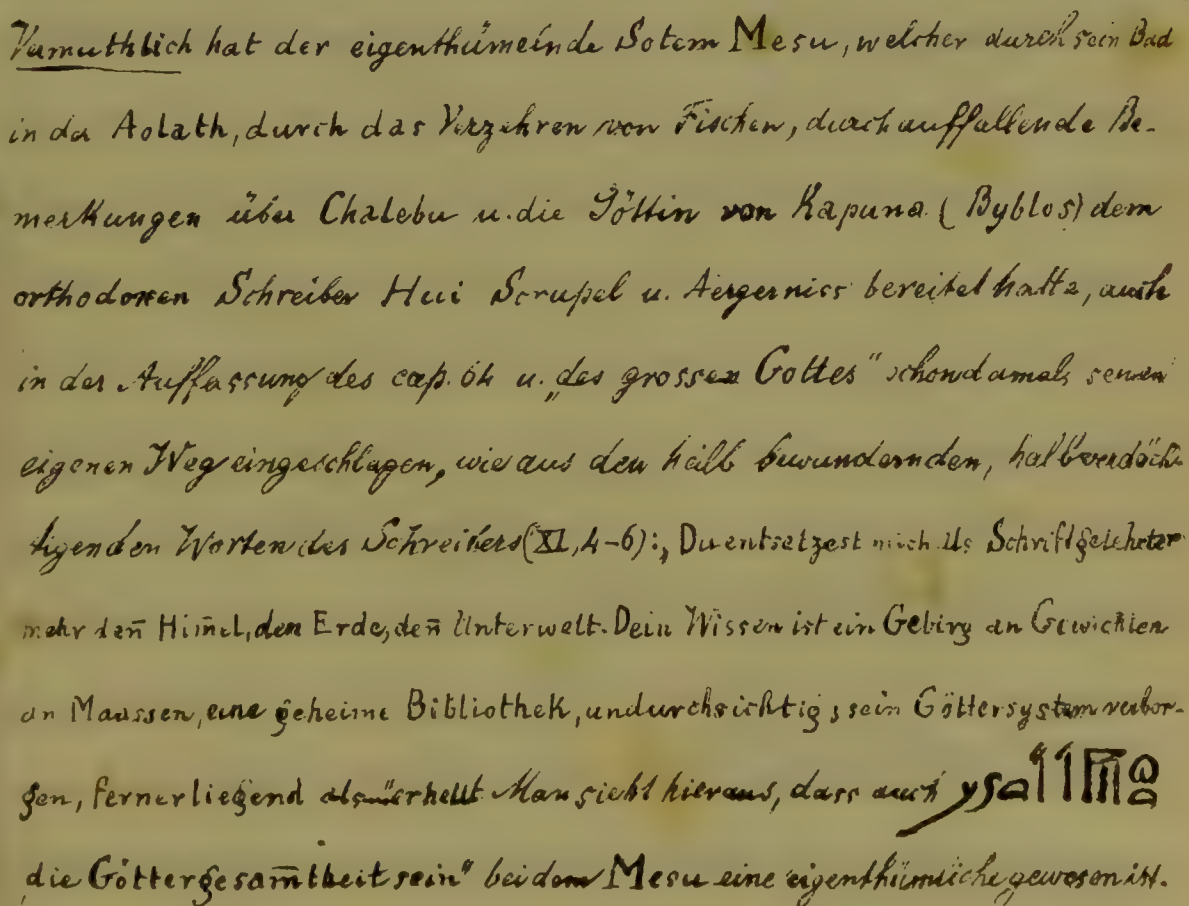 Vermuthlich hat der eigenthümelnde Sotem Mesu, welcher durch sein Bad
in der Aolath, durch das Verzehren von Fischen, durch auffallende Be-
merkungen über Chalebu u. die Göttin von Kapuna (Byblos) dem
orthodoxen Schreiber Hui Scrupel u. Aergerniss bereitet hatte, auch
in der Auffassung des cap. 64 u. „des grossen Gottes" schon damals seinen
eigenen Weg eingeschlagen, wie aus den halb bewundernden, halb verdäch-
tigenden Worten des Schreibers (XI, 4-6): „Du entsetzest mich als Schriftgelehrter
mehr deñ Him̄el, deñ Erde, deñ Unterwelt. Dein Wissen ist ein Gebirg an Gewichten
an Maassen, eine geheime Bibliothek, undurchsichtig, sein Göttersystem verbor-
gen, fernerliegend als" erhellt. Man sieht hieraus, dass auch
„die Göttergesam̄theit sein" bei dem Mesu eine eigenthümliche gewesen ist.